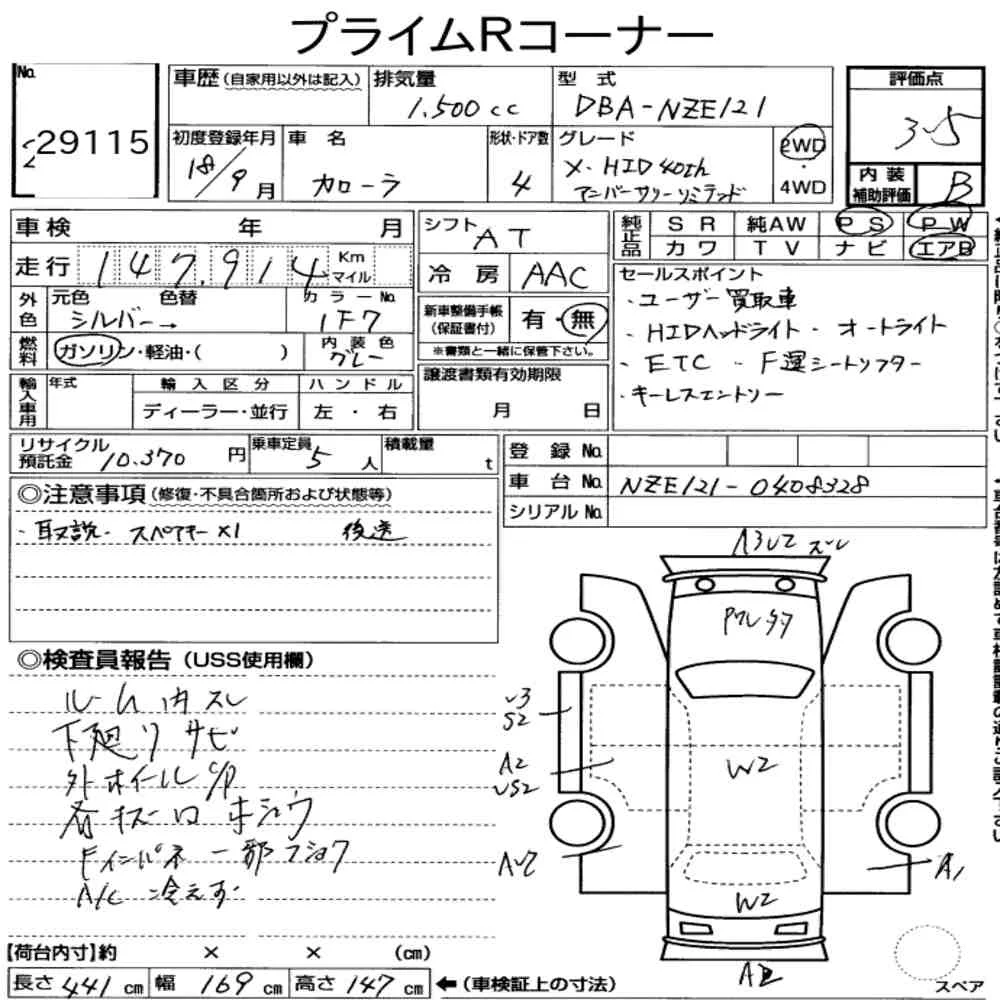 プライムRコーナー
No. 29115
車歴(自家用以外は記入) 排気量 1.500cc 型式 DBA-NZE121 評価点 3.5
初度登録年月 18/9月 車名 カローラ 形状・ドア数 4 グレード X・HID 40th アニバーサリーリミテッド 2WD 4WD 内装補助評価 B
車検 年 月 シフト AT 純正品 SR 純AW PS PW
カワ TV ナビ エアB
走行 147.914 Km マイル 冷房 AAC
セールスポイント
・ユーザー買取車
・HIDヘッドライト・オートライト
・ETC ・F運シートリフター
・キーレスエントリー
外色 元色 シルバー→ 色替 カラーNo. 1F7
新車整備手帳(保証書付) 有・無
※書類と一緒に保管下さい。
燃料 ガソリン・軽油・( ) 内装色 グレー
譲渡書類有効期限 月 日
輸入車用 年式 輸入区分 ハンドル
ディーラー・並行 左・右
リサイクル預託金 10.370円 乗車定員 5人 積載量 t
登録No.
車台No. NZE121-0408328
シリアルNo.
◎注意事項(修復・不具合箇所および状態等)
・取説・スペアキー×1 後送
◎検査員報告(USS使用欄)
ルーム内スレ
下廻りサビ
外ホイールC/P
各キズ凹ホシュウ
Fインパネ一部フショク
A/C冷えず
A3 U2 ズレ
U3
S2
A2
US2
W2
W2
A1
【荷台内寸】約 × × (cm)
長さ 441 cm 幅 169 cm 高さ 147 cm ←(車検証上の寸法)
スペア